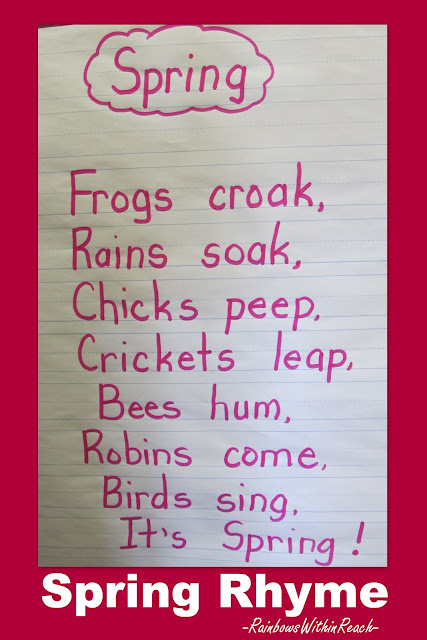 Spring
Frogs croak,
Rains soak,
Chicks peep,
Crickets leap,
Bees hum,
Robins come,
Birds sing,
It's Spring!
Spring Rhyme
-RainbowsWithinReach-